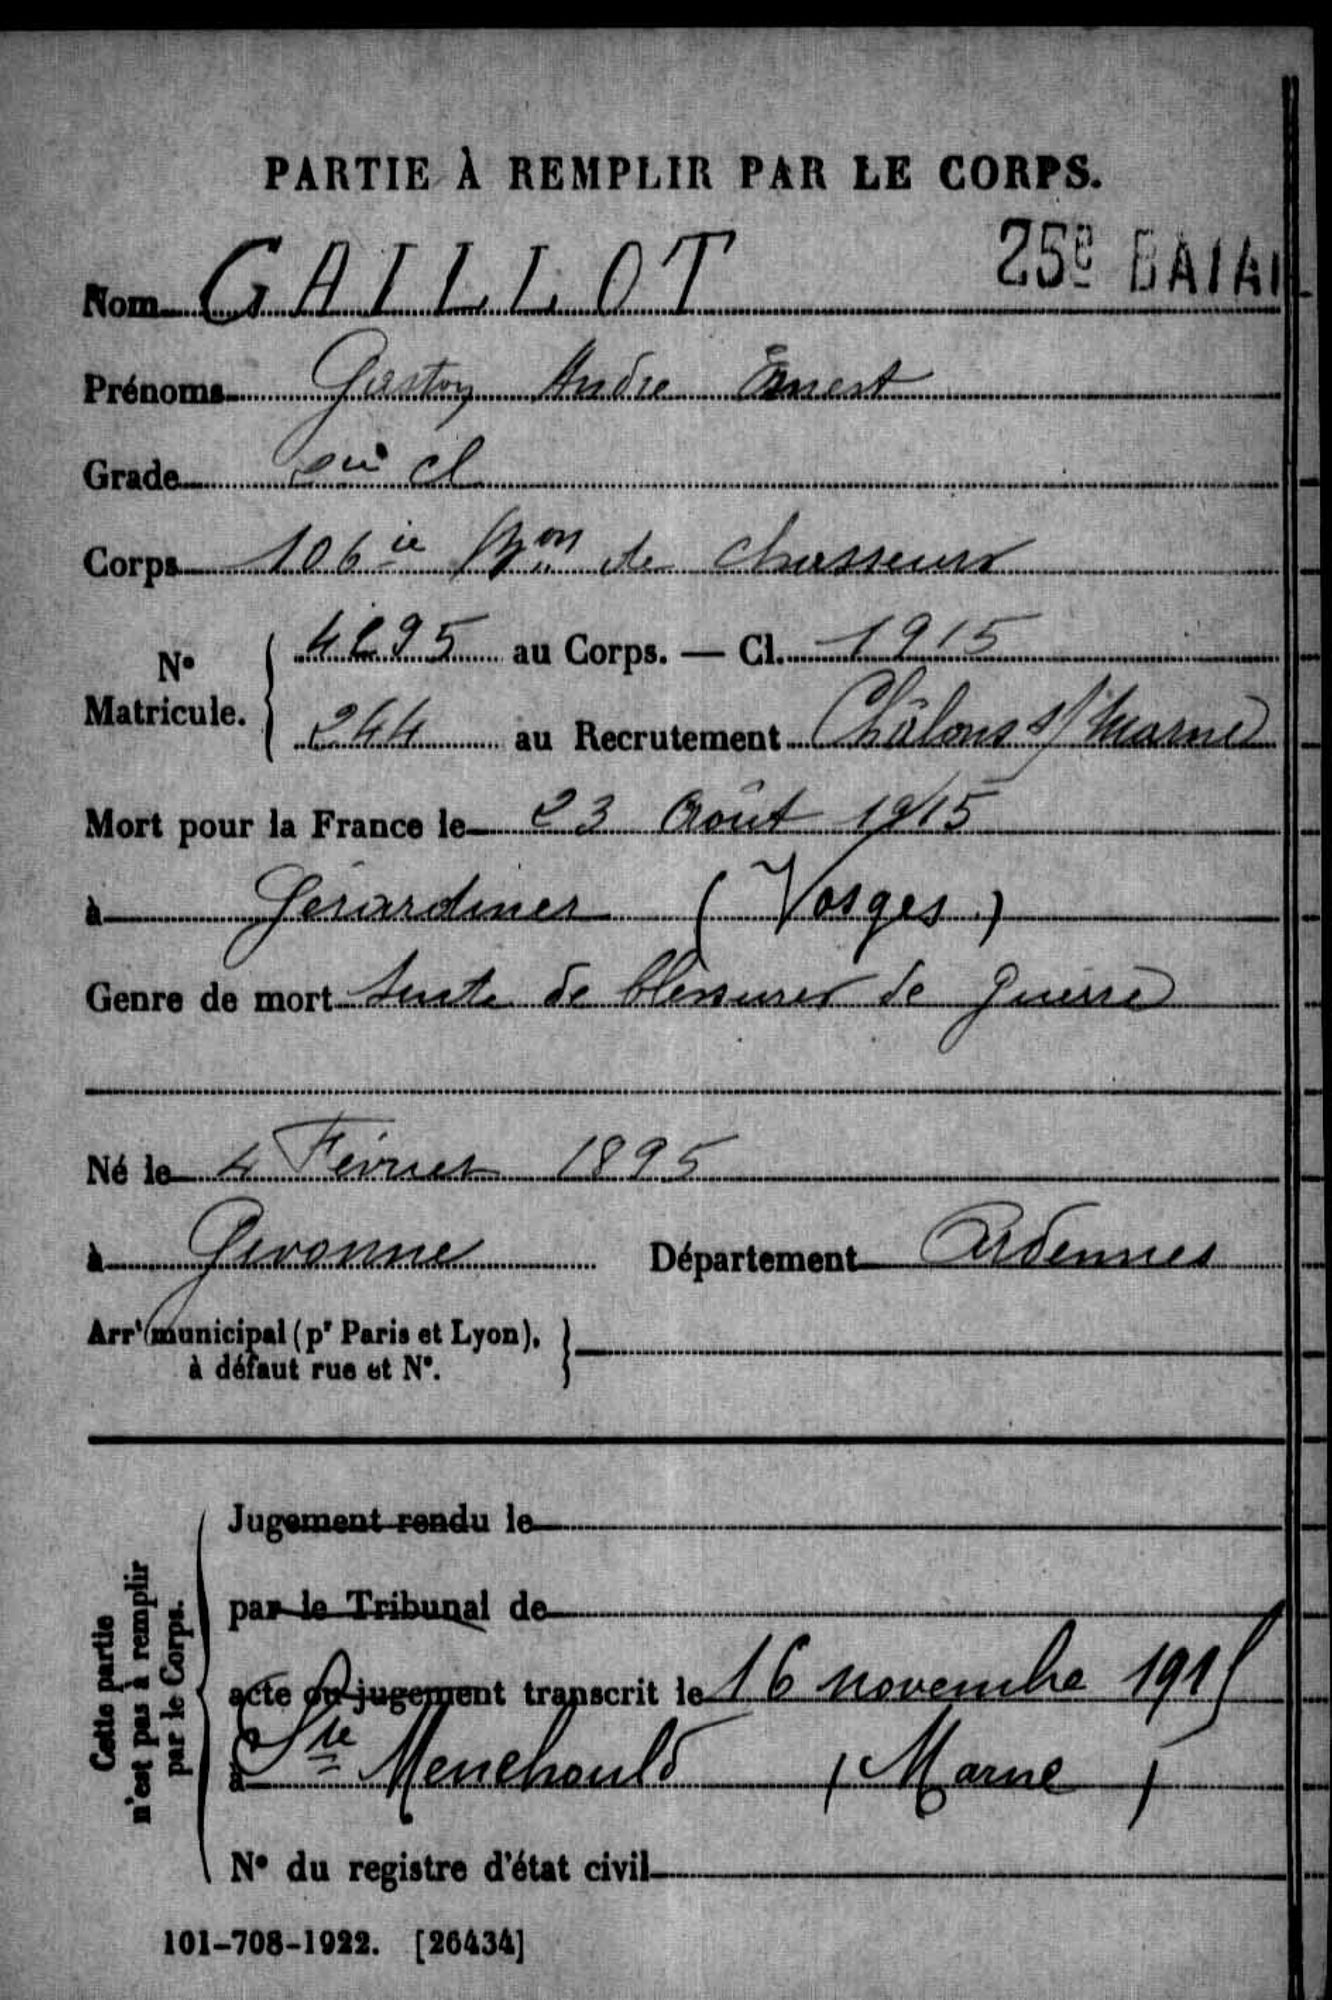 PARTIE À REMPLIR PAR LE CORPS.
25e BATAI
Nom GAILLOT
Prénoms Gaston André Ernest
Grade cl
Corps 106ie Bon de chasseurs
N° Matricule. 4295 au Corps. — Cl. 1915
244 au Recrutement Châlons s/ Marne
Mort pour la France le 23 Août 1915
à Gérardmer (Vosges)
Genre de mort suite de blessures de guerre
Né le 4 Février 1895
à Givonne Département Ardennes
Arrt municipal (pr Paris et Lyon),
à défaut rue et N°.
Cette partie
n'est pas à remplir
par le Corps.
Jugement rendu le
par le Tribunal de
acte ou jugement transcrit le 16 novembre 1915
à Ste Menehould (Marne)
N° du registre d'état civil
101-708-1922. [26434]